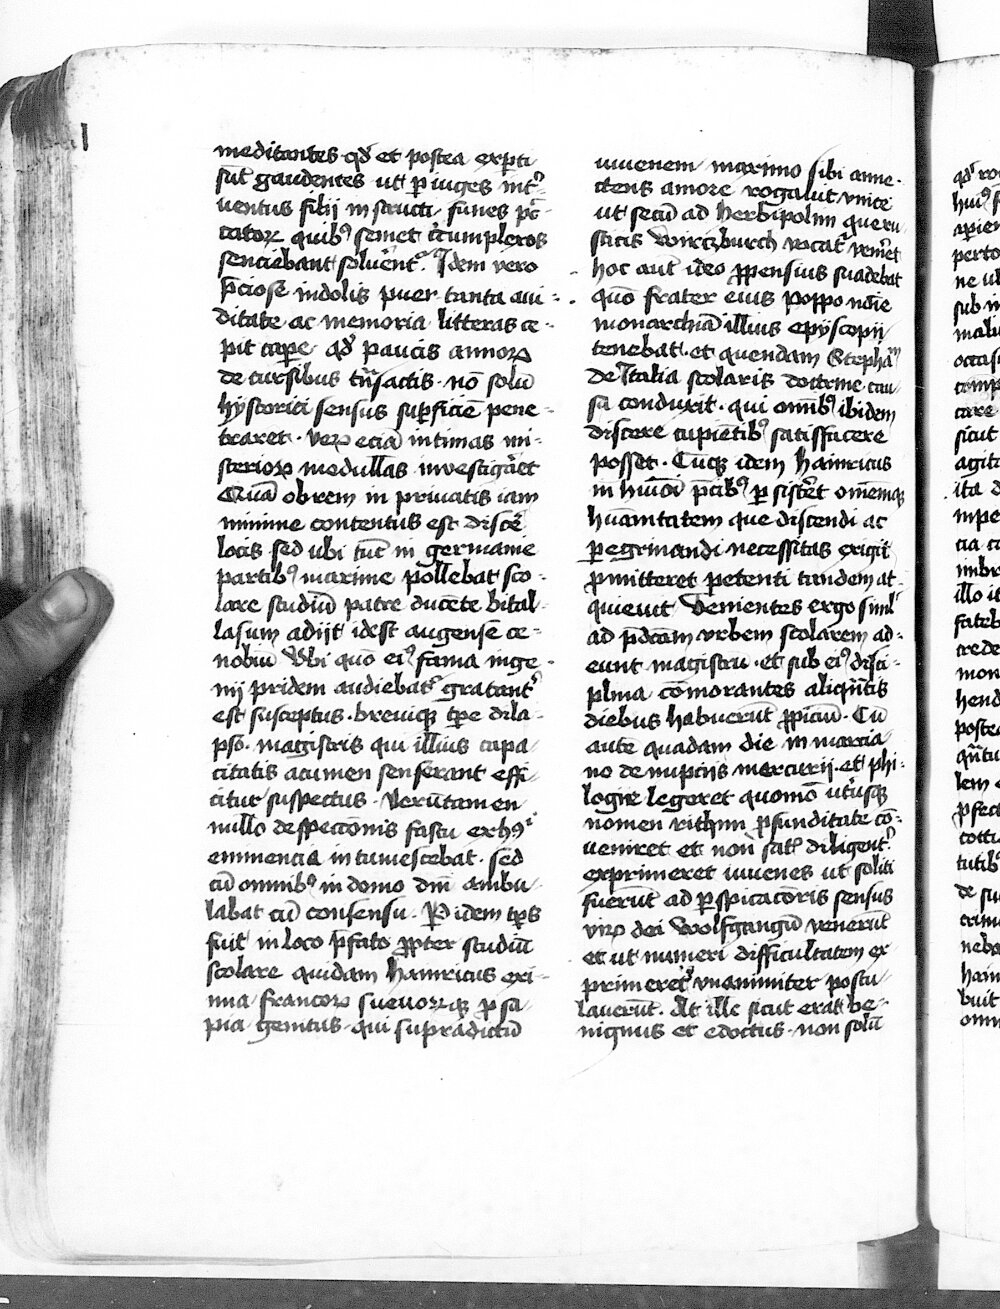 meditantes qd̓ et postea exp̱ti
sūt gaudentes ut ꝑ iuges int̓
uentus filij instructi funes pc̄
catoꝝ quibꝰ semet c̓cumplexos
senciebant soluēnt᷑. Idem vero
p̄ciose indolis puer tanta aui-
ditate ac memoria litteras ce-
pit caꝑe qd̓ paucis annoꝝ
decursibus tn̄sactis · nō solū
hystorici sensus suꝑficiē pene-
traret · veꝝ eciā intimas mi-
sterioꝝ medullas inuestigaret
Quā obrem in priuatis iam
minime contentus est discē
locis sed ubi tūc in germanie
partibꝰ maxime pollebat sco-
lare studiū patre ducēte bital-
lasum adijt idest augense ce-
nobiū Vbi quō eiꝰ fama inge-
nij pridem audiebat᷑ gratant̓
est susceptus · breuiqꝫ tꝑe dila-
pso · magistris qui illius capa
citatis acumen senserant effi
citur suspectus · Verūtamen
nullo despectōnis fastu ex hꝰ
eminencia intumescebat · sed
cū omnibꝰ in domo dn̄i ambu
labat cū consensu · P idem tp̄s
fuit in loco p̄fato ꝓpter studiū
scolare quidam hainricus exi-
mia francoꝝ sueuoꝝqꝫ ꝓsa
pia genitus qui supradictū
iuuenem maximo sibi anne-
ctens amore rogauit vnice
ut secū ad herbipolim queru
sticis Wirczburch vocat᷑ venir̄et
hoc aut̄ ideo ꝓpensius suadebat
quō frater eius poppo nōie
monarchiā illius epyscopij
tenebat · et quendam Stephāū
de Italia scolaris doctrine cau
sa conduxit · qui omībꝰ ibidem
discere cupientibꝰ satisfacere
posset · Cūqꝫ idem hainricus
in huiōi p̄cibꝰ ꝑsisteret omēmqꝫ
huāmtatem que discendi ac
ꝑegrinandi necessitas exigit
ꝓmitteret petenti tandem at-
quieuit Venientes ergo siml̓
ad p̄dcām vrbem scolarem ad-
eunt magistrū · et sub eiꝰ disci-
plina cōmorantes aliqn̄tis
diebus habuerūt ꝓpiciū · Cū
aute quadam die in marcia
no de nupcijs mercurij et phi-
logie legeret quomō utriusqꝫ
nomen rithmi ꝓfunditate cō-
ueniret et non sat̓ diligent̓
exprimeret iuuenes ut soliti
fuerūt ad ꝑspicacōris sensus
viꝝ dei Wolfgangū venerūt
et ut numeri difficultatem ex
primeret᷑ vnanimiter postu
lauerūt. At ille sicut erat be-
nignus et edoctus · non solū